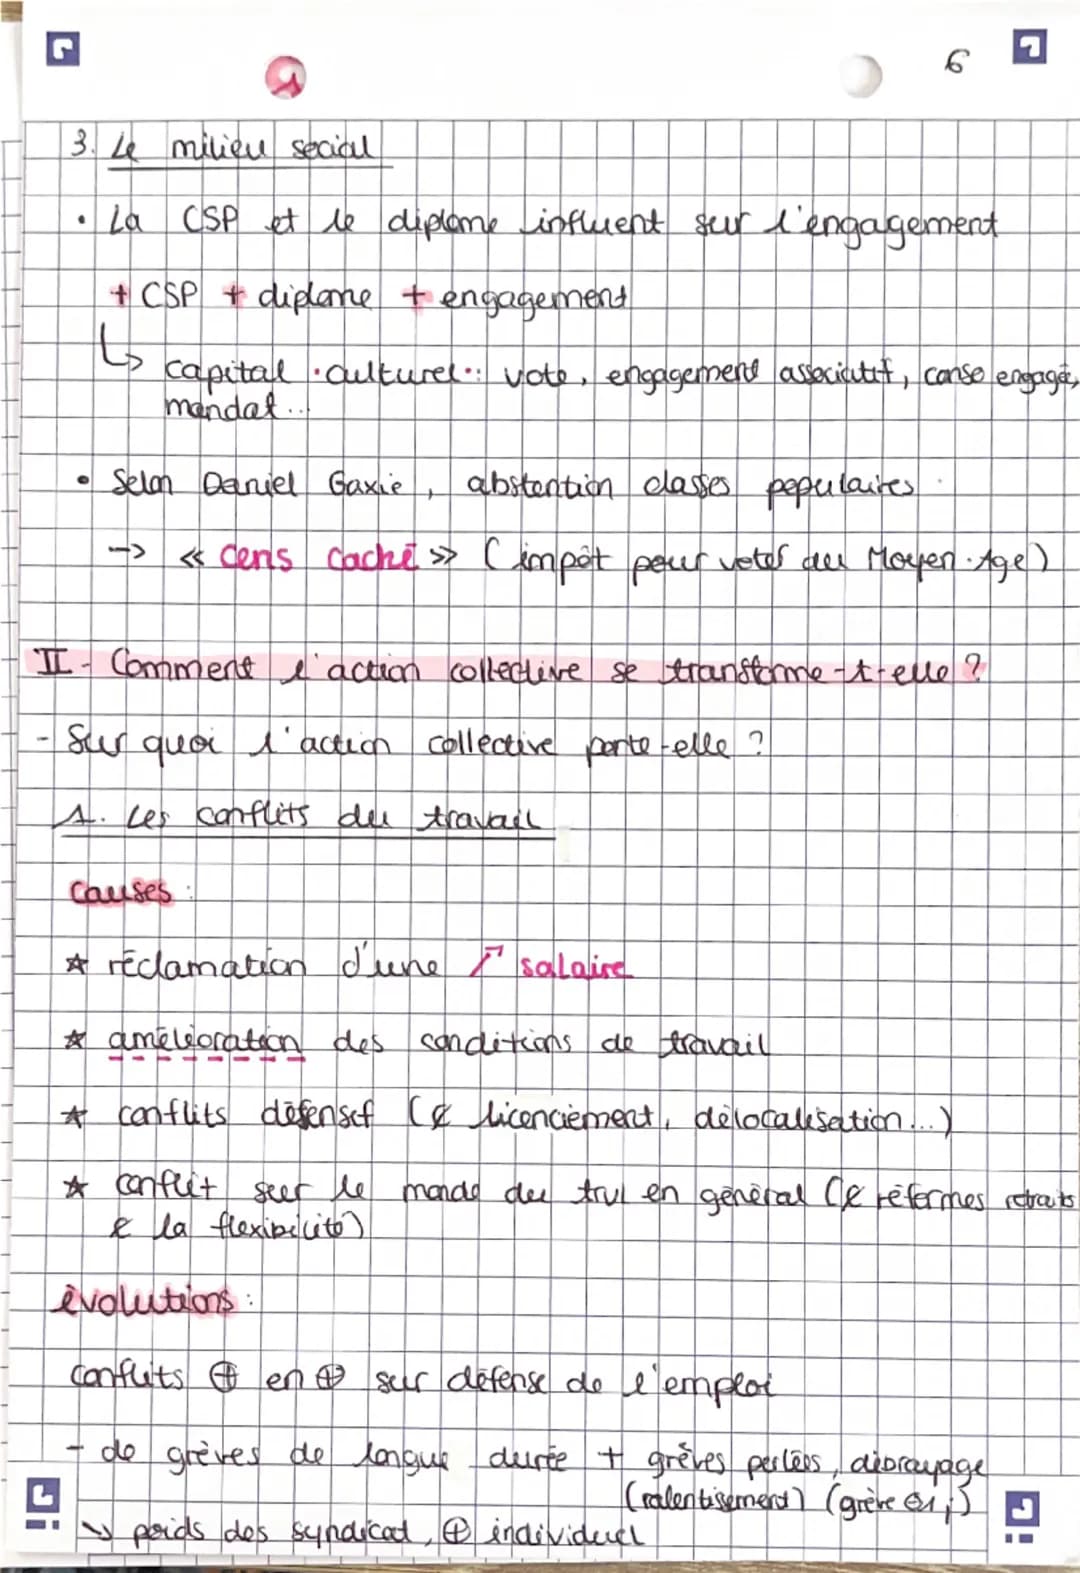 6
3. Le milieu social
• La CSP et le diplome influent sur l'engagement
+ CSP + diplome + engagement
↳ capital culturel : vote, engagement associatif, conso engagé,
mandat...
• Selon Daniel Gaxie, abstention classes populaires.
-> « Cens Caché » (impôt pour voter au Moyen-Age)
II - Comment l'action collective se transforme-t-elle ?
- Sur quoi l'action collective porte-elle ?
1. Les conflits du travail
Causes :
☆ réclamation d'une ↗ salaire
☆ amélioration des conditions de travail
☆ conflits défensif (& licenciement, délocalisation...)
☆ conflit sur le monde du trvl en général (& réformes retraits
& la flexibilité)
évolutions :
Conflits ⊕ en ⊕ sur défense de l'emploi
- de grèves de longue durée + grèves perlées, débrayage
(ralentisement) (grève 1j)
↘ poids des syndicat, ⊕ individuel